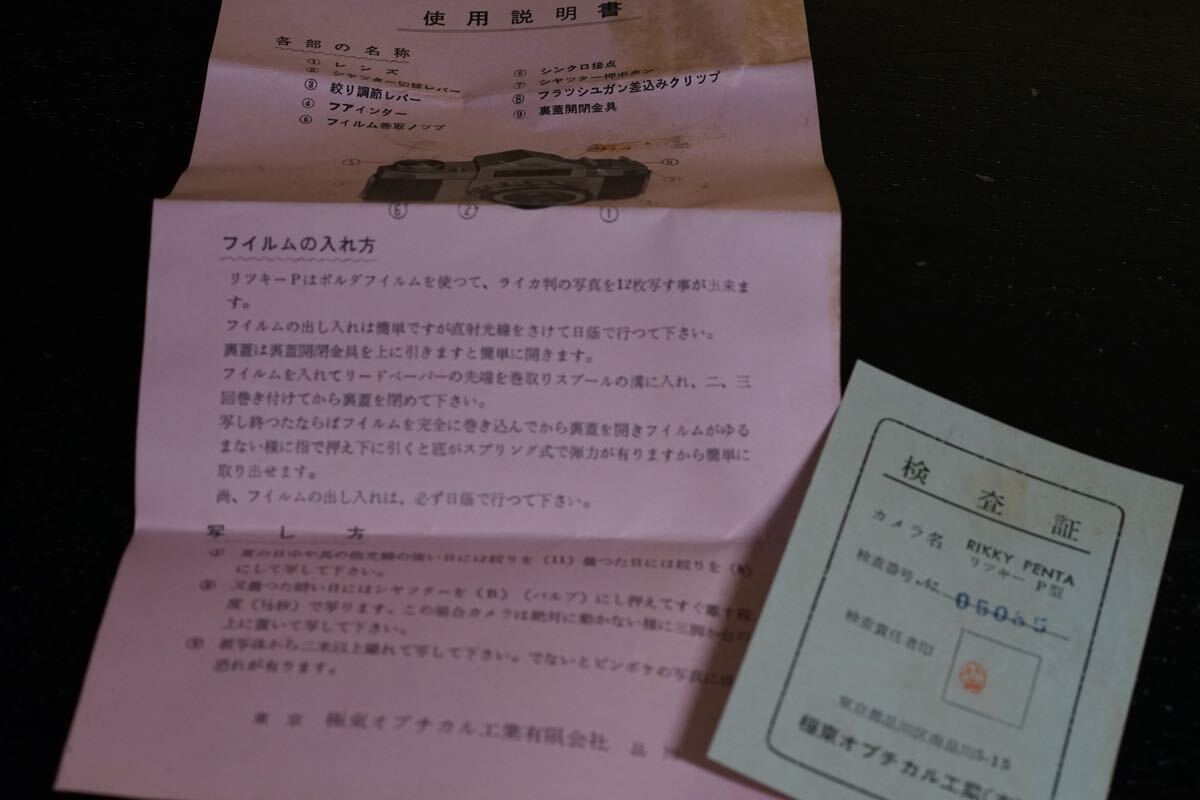 使用説明書
各部の名称
① レンズ
② シヤツター切替レバー
③ 絞り調節レバー
④ フアインダー
⑤ フイルム巻取ノツブ
⑥ シンクロ接点
⑦ シヤツター押ボタン
⑧ フラツシユガン差込みクリツプ
⑨ 裏蓋開閉金具
⑤ ⑧
⑥ ② ①
フイルムの入れ方
リツキーPはボルダフイルムを使つて、ライカ判の写真を12枚写す事が出来ま
す。
フイルムの出し入れは簡単ですが直射光線をさけて日蔭で行つて下さい。
裏蓋は裏蓋開閉金具を上に引きますと簡単に開きます。
フイルムを入れてリードペーパーの先端を巻取りスプールの溝に入れ、二、三
回巻き付けてから裏蓋を閉めて下さい。
写し終つたならばフイルムを完全に巻き込んでから裏蓋を開きフイルムがゆる
まない様に指で押え下に引くと底がスプリング式で弾力が有りますから簡単に
取り出せます。
尚、フイルムの出し入れは、必ず日蔭で行つて下さい。
写し方
① 夏の日中や其の他光線の強い日には絞りを (11) 曇つた日には絞りを (8)
にして写して下さい。
② 又曇つた暗い日にはシヤツターを (B) (バルブ) にし押えてすぐ離す程
度 (½秒) で写ります。この場合カメラは絶対に動かない様に三脚か台の
上に置いて写して下さい。
③ 被写体から二米以上離れて写して下さい。でないとピンボケの写真になる
恐れが有ります。
東京 極東オプチカル工業有限会社 品
検査証
カメラ名 RIKKY PENTA
リツキー P型
検査番号 No. 05055
検査責任者印
東京都品川区南品川5-15
極東オプチカル工業(有